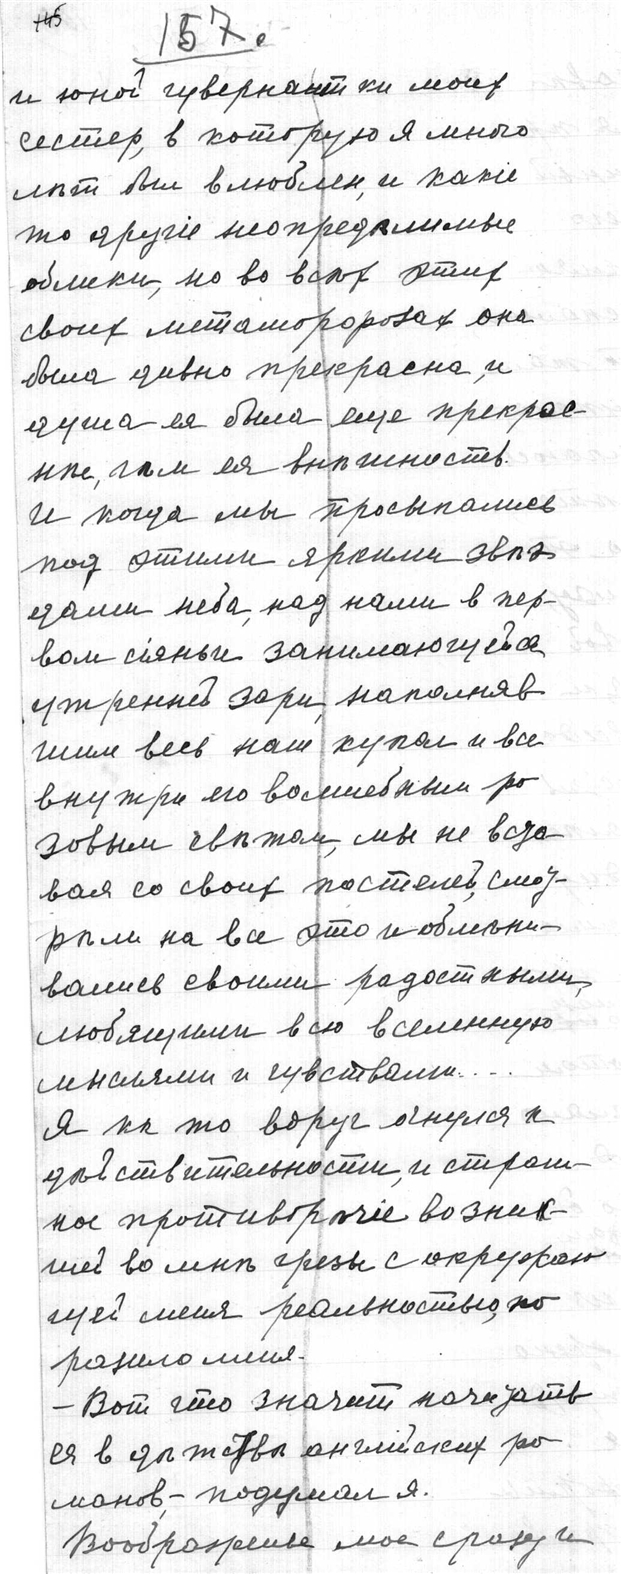 145
157.
и юной гувернантки моих
сестер, в которую я много
лѣт был влюблен, и какіе
то другіе неопредѣлимые
облики, но во всѣх этих
своих метаморфозах она
была дивно прекрасна, и
душа ея была еще прекрас-
нѣе, чѣм ея внѣшность.
И когда мы просыпались
под этими яркими звѣз
дами неба, над нами в пер-
вом сіяньи занимающейся
утренней зари, наполняв
шим весь наш купол и все
внутри его волшебным ро
зовым свѣтом, мы не вста
вая со своих постелей, смот-
рѣли на все это и обмѣни-
вались своими радостными,
любящими всю вселенную
мыслями и чувствами....
Я как то вдруг очнулся к
дѣйствительности, и страш-
ное противорѣчіе возник-
шей во мнѣ грезы с окружаю
щей меня реальностью, по
разило меня.
– Вот что значит начитать
ся в дѣтствѣ англійских ро
манов, – подумал я.
Воображенье мое сразу и